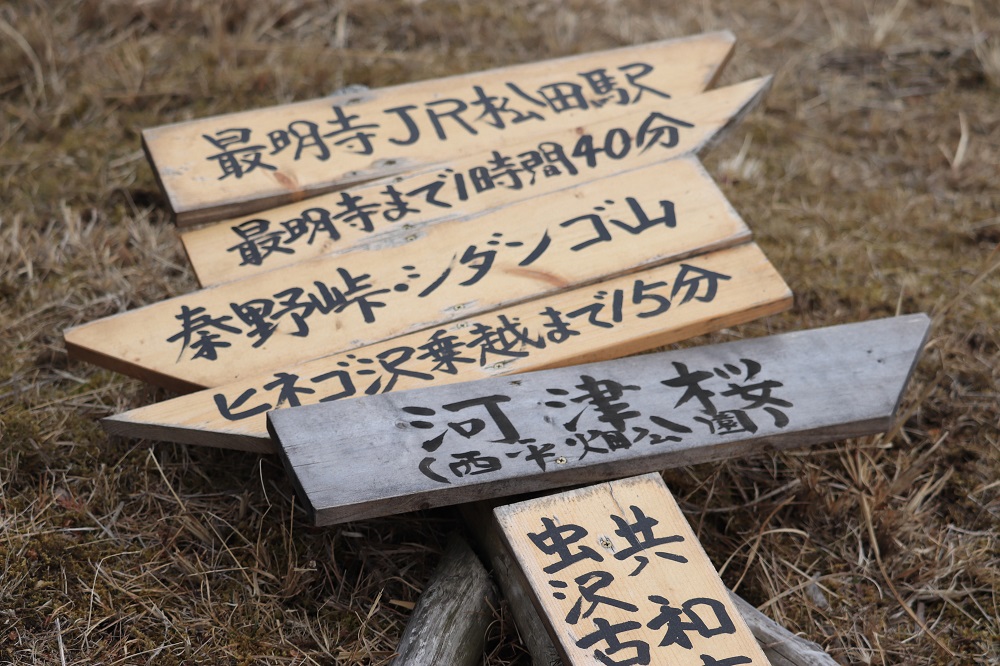 最明寺JR松田駅
最明寺まで1時間40分
秦野峠・シダンゴ山
ヒネゴ沢乗越まで15分
河津桜
(西平畑公園)
共和
虫沢古